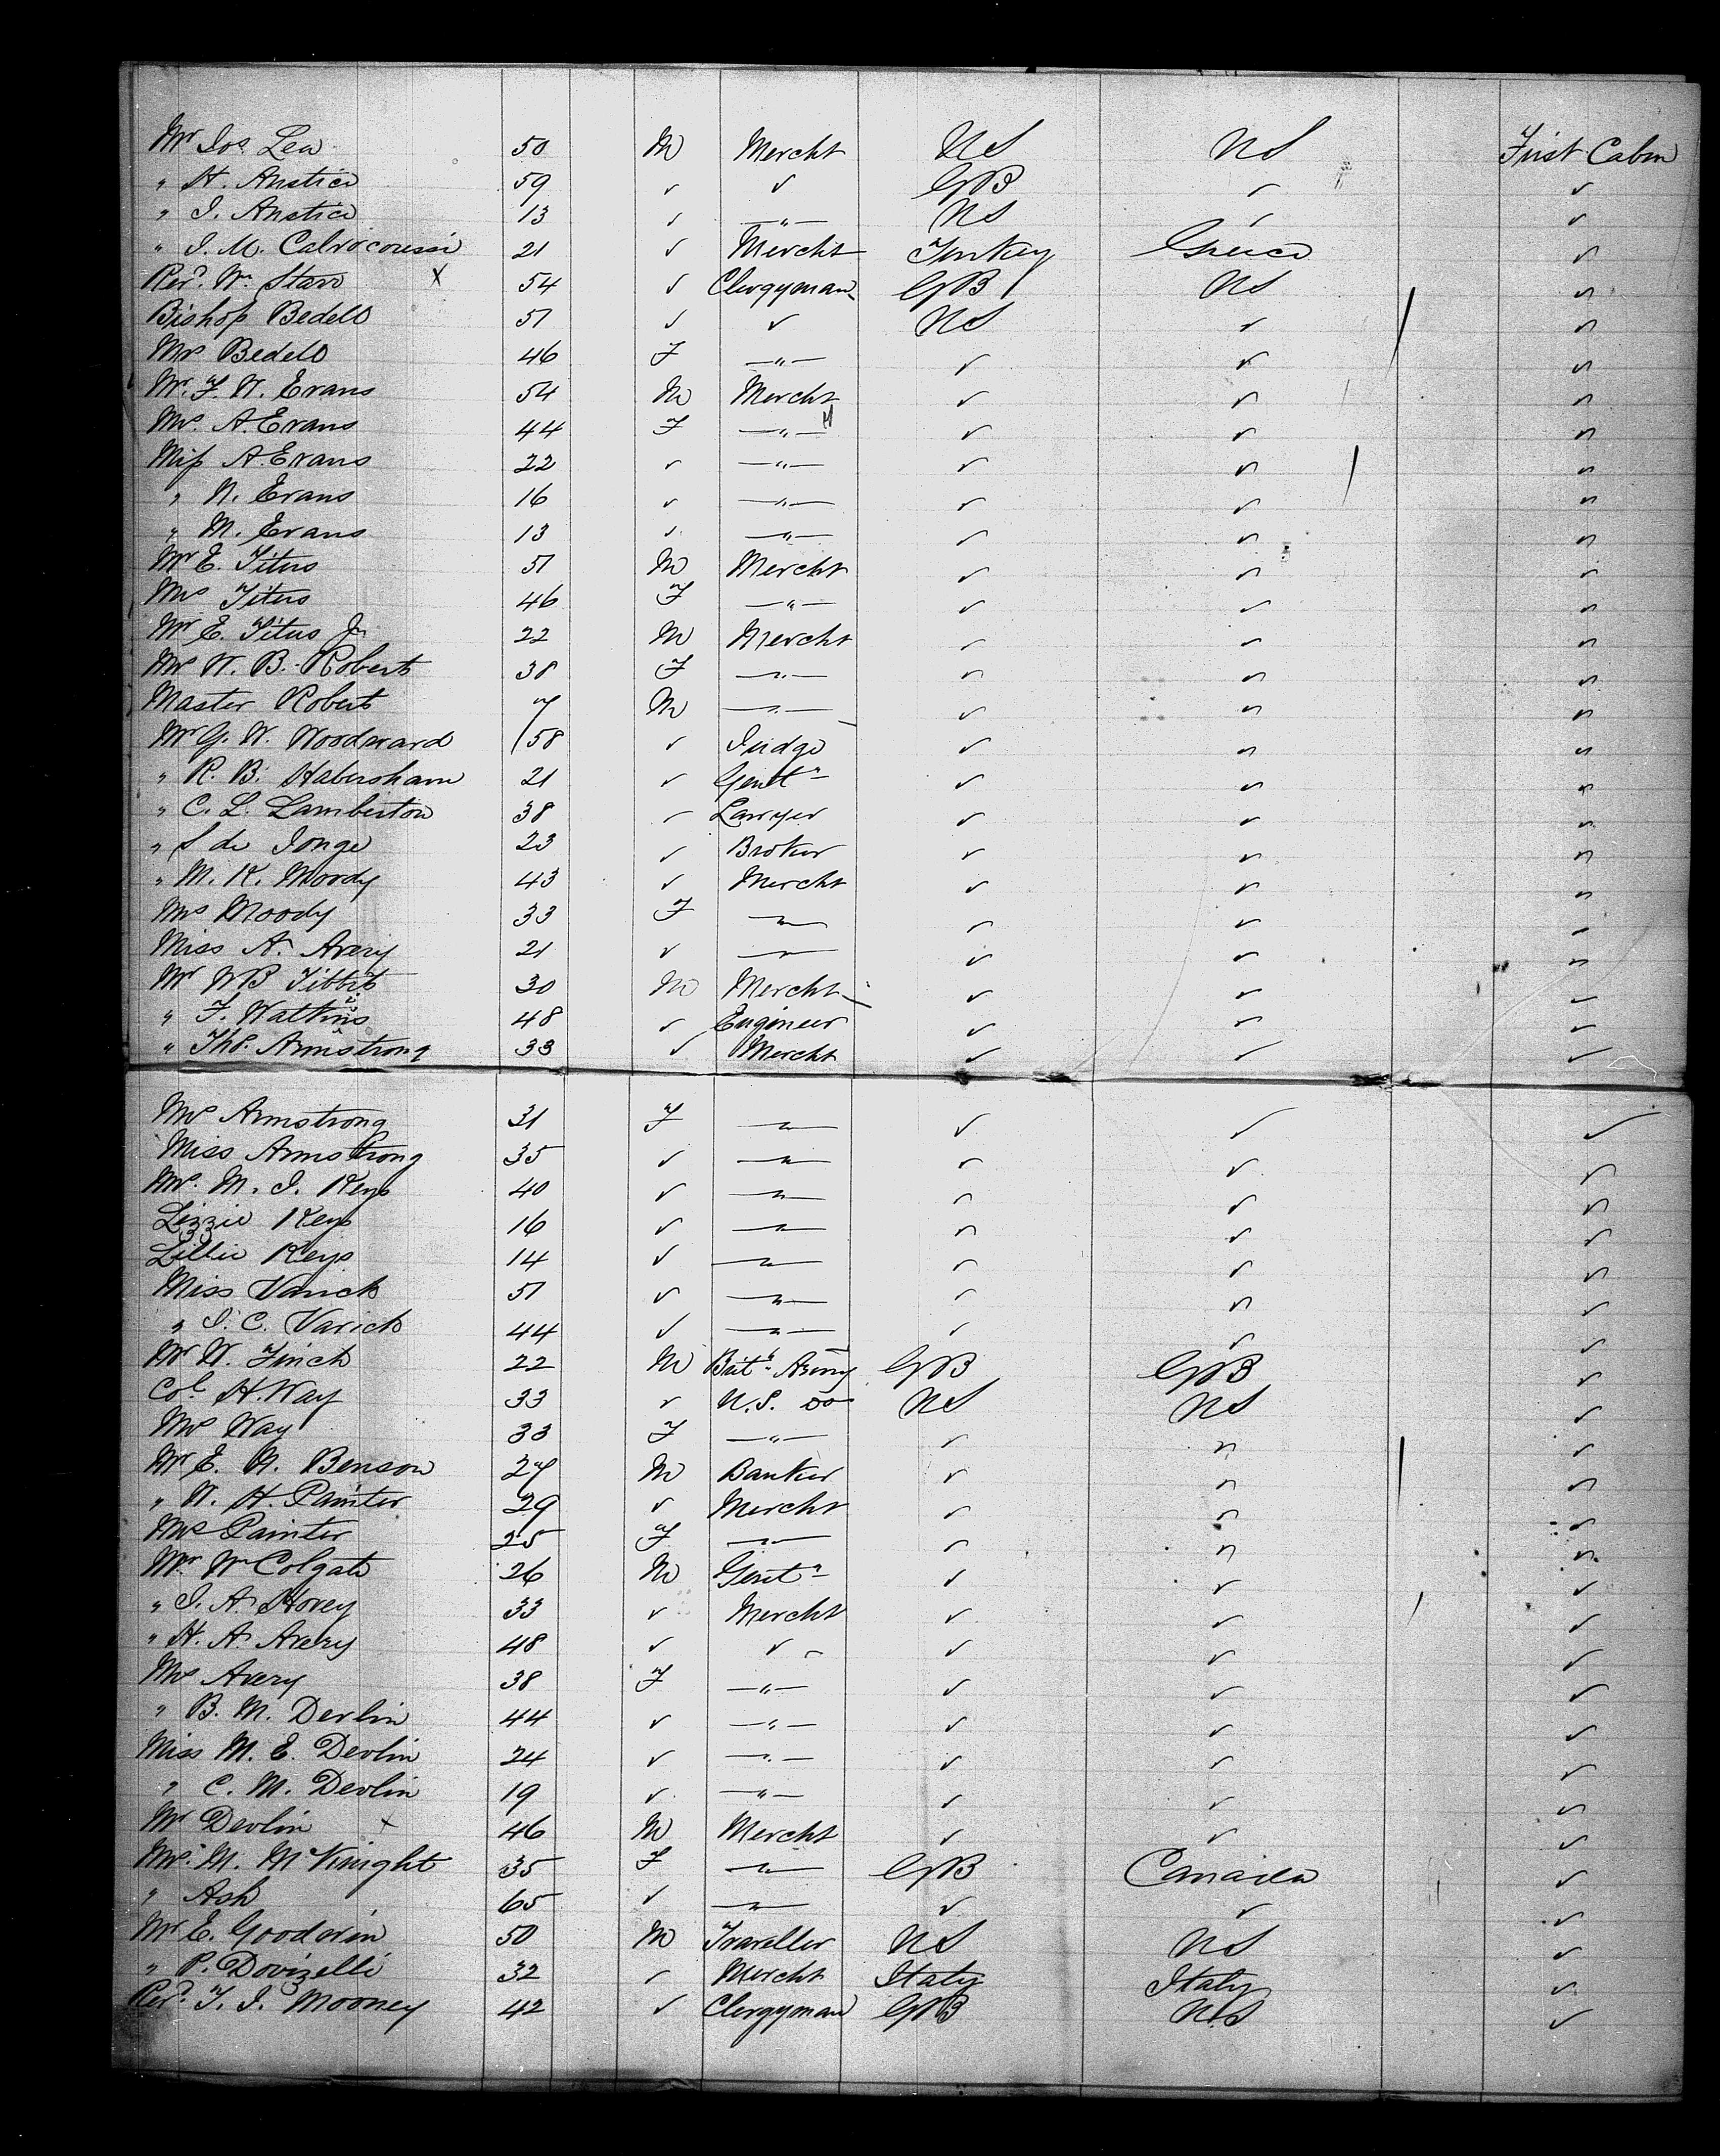 Mr Jos. Lea 50 M Mercht US US First Cabin
" H. Anstice 59 ✓ ✓ GB ✓ ✓
" J. Anstice 13 ✓ —"— US ✓ ✓
" J. M. Calvocoressi 21 ✓ Mercht Turkey Greece ✓
Revd. Wm. Starr X 54 ✓ Clergyman GB US ✓
Bishop Bedell 51 ✓ ✓ US ✓ ✓
Mrs Bedell 46 F —"— ✓ ✓ ✓
Mr. F. W. Evans 54 M Mercht ✓ ✓ ✓
Mrs. A. Evans 44 F —"— ✓ ✓ ✓
Miss A. Evans 22 ✓ —"— ✓ ✓ ✓
" N. Evans 16 ✓ —"— ✓ ✓ ✓
" M. Evans 13 ✓ —"— ✓ ✓ ✓
Mr E. Titus 51 M Mercht ✓ ✓ ✓
Mrs Titus 46 F —"— ✓ ✓ ✓
Mr E. Titus Jr 22 M Mercht ✓ ✓ ✓
Mrs W. B. Roberts 38 F —"— ✓ ✓ ✓
Master Roberts 7 M —"— ✓ ✓ ✓
Mr G. W. Woodward 58 ✓ Judge ✓ ✓ ✓
" R. B. Habersham 21 ✓ Gentn ✓ ✓ ✓
" C. L. Lamberton 38 ✓ Lawyer ✓ ✓ ✓
" S de Jonge 23 ✓ Broker ✓ ✓ ✓
" M. K. Moody 43 ✓ Mercht ✓ ✓ ✓
Mrs Moody 33 F —"— ✓ ✓ ✓
Miss A. Avery 21 ✓ —"— ✓ ✓ ✓
Mr WB Tibbits 30 M Mercht ✓ ✓ ✓
" F. Watkins 48 ✓ Engineer ✓ ✓ ✓
" Thos. Armstrong 33 ✓ Mercht ✓ ✓ ✓
Mrs Armstrong 31 F —"— ✓ ✓ ✓
Miss Armstrong 35 ✓ —"— ✓ ✓ ✓
Mrs. M. J. Keys 40 ✓ —"— ✓ ✓ ✓
Lizzie Keys 16 ✓ —"— ✓ ✓ ✓
Lillie Keys 14 ✓ —"— ✓ ✓ ✓
Miss Varick 51 ✓ —"— ✓ ✓ ✓
" J. C. Varick 44 ✓ —"— ✓ ✓ ✓
Mr W. Finch 22 M Brith. Army GB GB ✓
Col. H. Way 33 ✓ U.S. do US US ✓
Mrs Way 33 F —"— ✓ ✓ ✓
Mr E. N. Benson 27 M Banker ✓ ✓ ✓
" W. H. Painter 29 ✓ Mercht ✓ ✓ ✓
Mrs Painter 25 F —"— ✓ ✓ ✓
Mr. Wm Colgate 26 M Gentn ✓ ✓ ✓
" J. A. Hovey 33 ✓ Mercht ✓ ✓ ✓
" H. A. Avery 48 ✓ ✓ ✓ ✓ ✓
Mrs Avery 38 F —"— ✓ ✓ ✓
" B. M. Devlin 44 ✓ —"— ✓ ✓ ✓
Miss M. E. Devlin 24 ✓ —"— ✓ ✓ ✓
" C. M. Devlin 19 ✓ —"— ✓ ✓ ✓
Mr Devlin X 46 M Mercht ✓ ✓ ✓
Mrs. M. McKnight 35 F —"— GB Canada ✓
" Ash 65 ✓ —"— ✓ ✓ ✓
Mr E. Goodwin 50 M Traveller US US ✓
" P. Dovizelli 32 ✓ Mercht Italy Italy ✓
Revd. T. J. Mooney 42 ✓ Clergyman GB US ✓